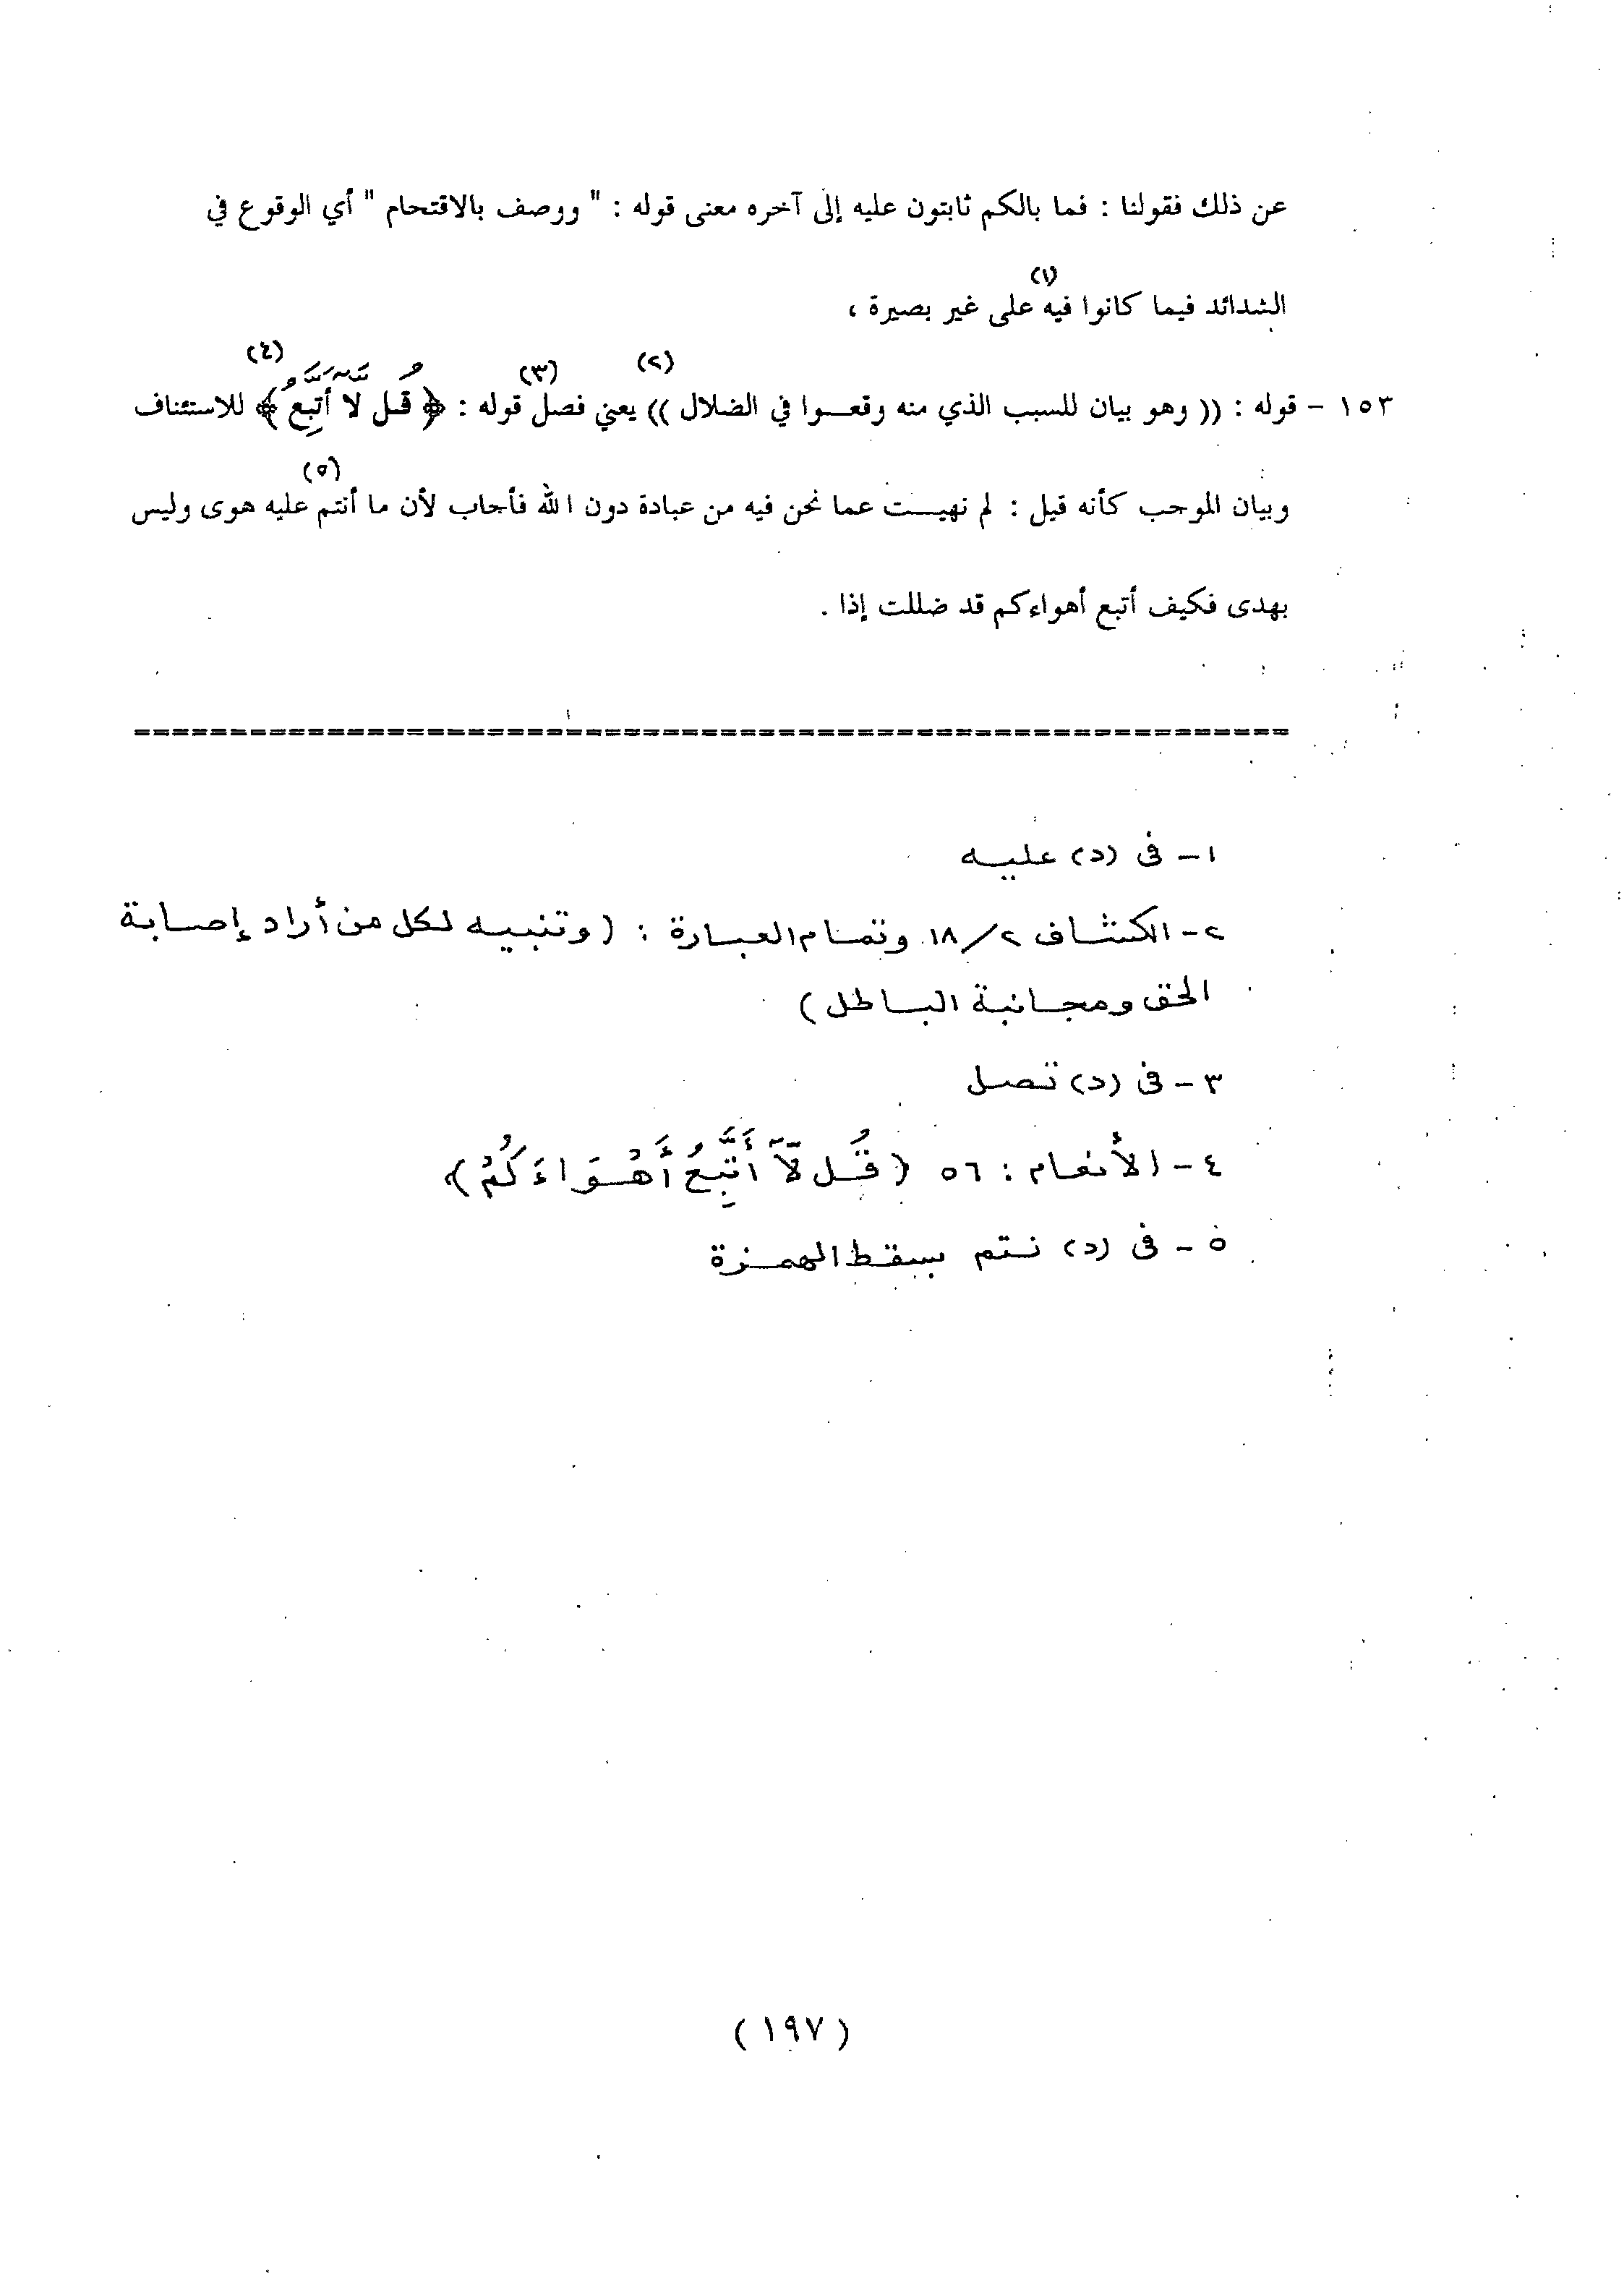 عن ذلك فقولنا : فما بالكم ثابتون عليه إلى آخره معنى قوله : " ووصف بالاقتحام " أي الوقوع في
الشدائد فيما كانوا فيه (١) على غير بصيرة ،
١٥٣ - قوله : (( وهو بيان للسبب الذي منه وقعـــوا في الضلال )) (٢) يعني فصل (٣) قوله : ﴿ قُـل لَّآ أَتَّبِعُ ﴾ (٤) للاستئناف
وبيان الموجب كأنه قيل : لم نهيــت عما نحن فيه من عبادة دون الله فأجاب لأن ما أنتم (٥) عليه هوى وليس
بهدى فكيف أتبع أهواءكم قد ضللت إذا .
١ - فى (د) عليـه
٢ - الكشاف ٢/١٨ وتمـام العبـارة : ( وتنبيـه لكل من أراد إصـابة
الحق ومجـانبة البـاطل )
٣ - فى (د) تصـل
٤ - الأنعام : ٥٦ ( قُـل لَّآ أَتَّبِعُ أَهْـوَاءَكُمْ )
٥ - فى (د) نـتم بسقـط الهمـزة
( ١٩٧ )